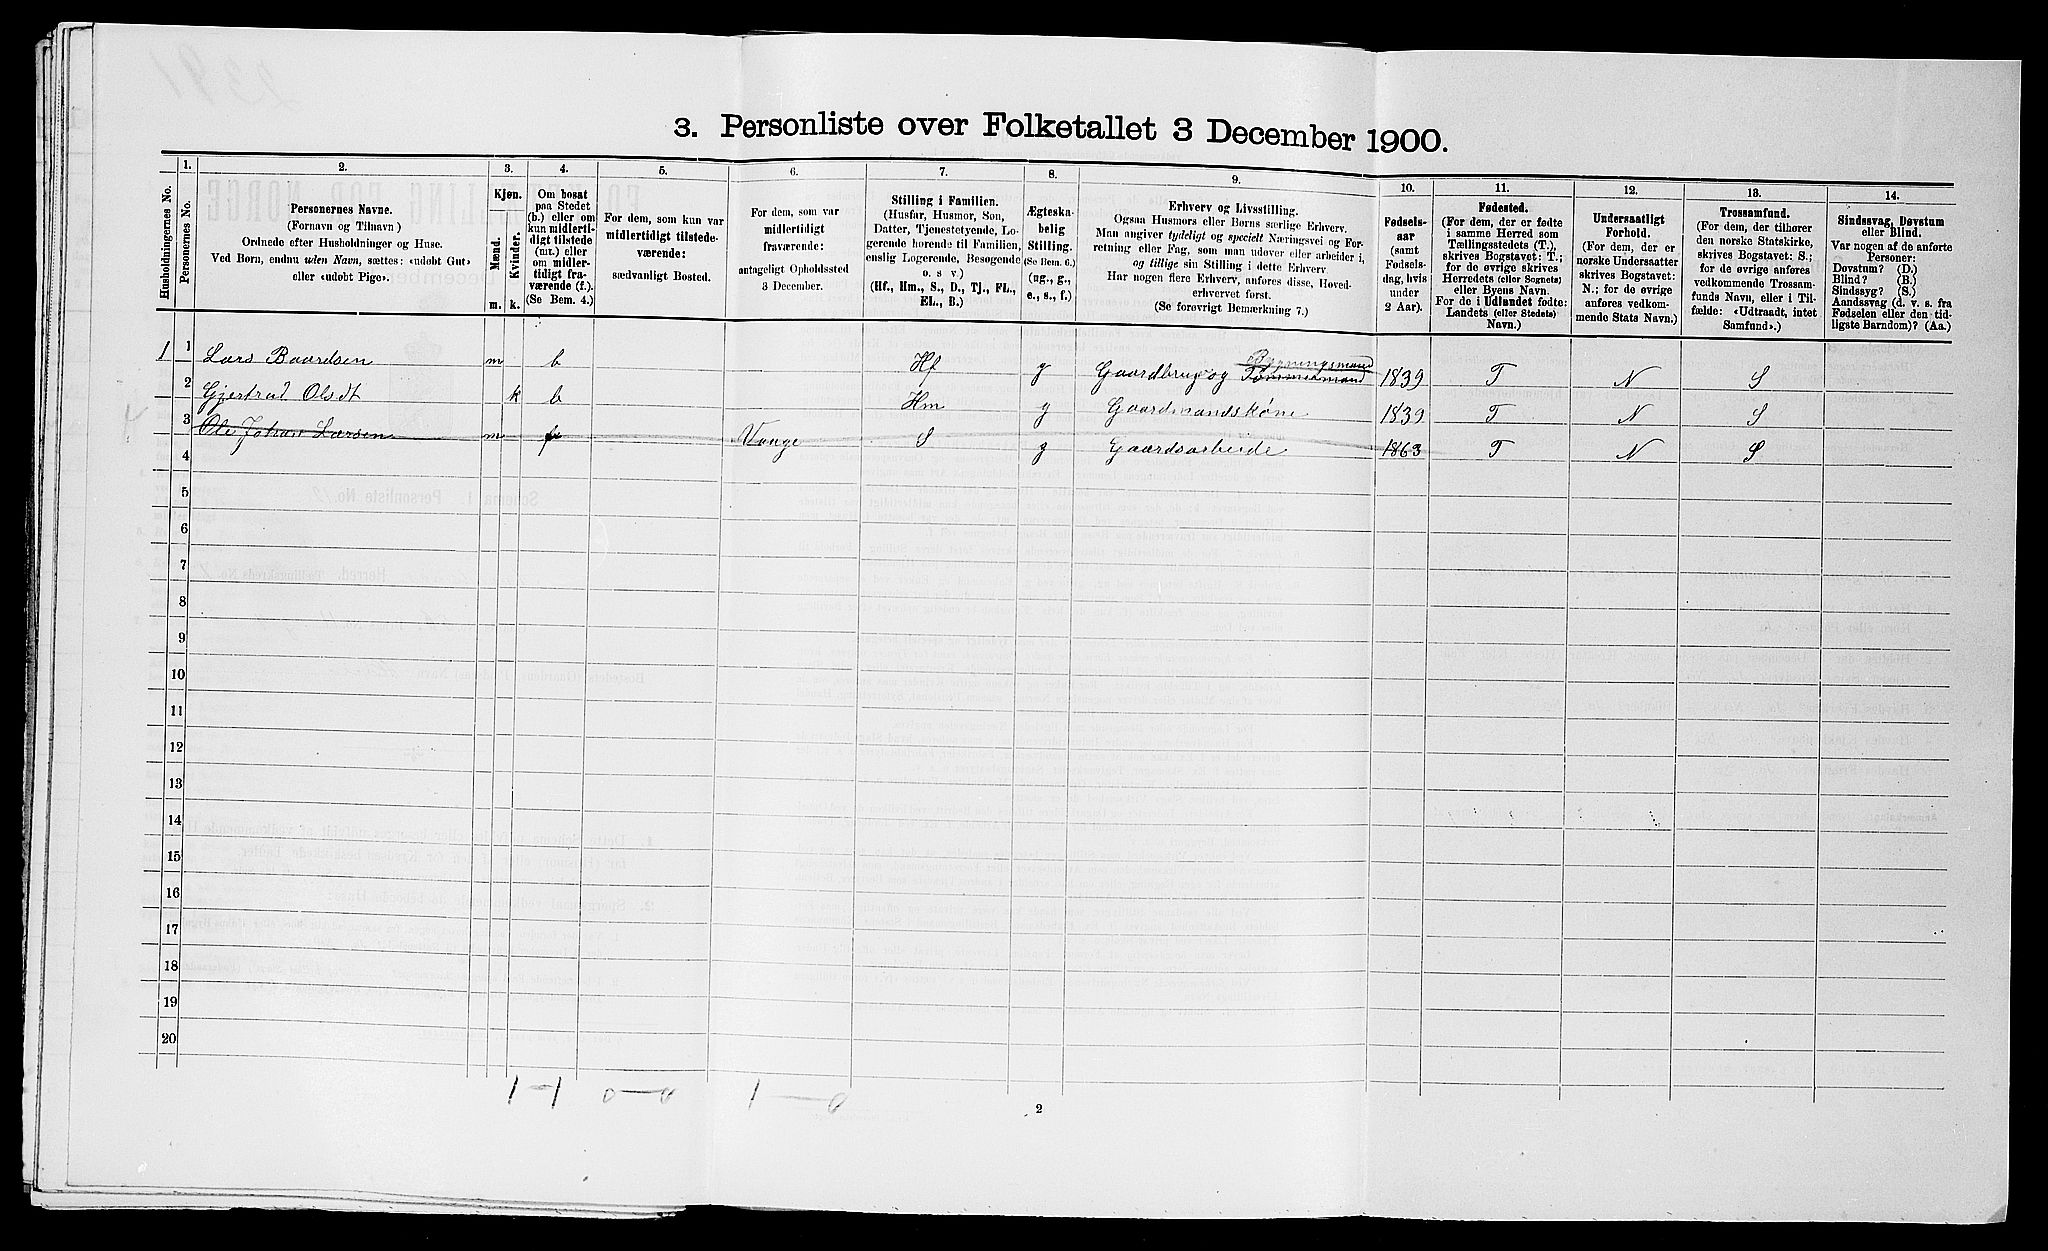 3. Personliste over Folketallet 3 December 1900.
Husholdningernes No.
1.
Personernes No.
2.
Personernes Navne.
(Fornavn og Tilnavn)
Ordnede efter Husholdninger og Huse.
Ved Børn, endnu uden Navn, sættes: «udøbt Gut»
eller «udøbt Pige».
3.
Kjøn.
Mænd.
Kvinder.
m. k.
4.
Om bosat
paa Stedet
(b.) eller om
kun midler-
tidigt tilstede
(mt.) eller
om midler-
tidigt fra-
værende (f.).
(Se Bem. 4.)
5.
For dem, som kun var
midlertidigt tilstede-
værende:
sædvanligt Bosted.
6.
For dem, som var
midlertidigt
fraværende:
antageligt Opholdssted
3 December.
7.
Stilling i Familien.
(Husfar, Husmor, Søn,
Datter, Tjenestetyende, Lo-
gerende hørende til Familien,
enslig Logerende, Besøgende
o. s v.)
(Hf., Hm., S., D., Tj., FL.,
EL., B.)
8.
Ægteska-
belig
Stilling.
(Se Bem. 6.)
(ug., g.,
e., s., f.)
9.
Erhverv og Livsstilling.
Ogsaa Husmors eller Børns særlige Erhverv.
Man angiver tydeligt og specielt Næringsvei og For-
retning eller Fag, som man udøver eller arbeider i,
og tillige sin Stilling i dette Erhverv.
Har nogen flere Erhverv, anføres disse, Hoved-
erhvervet først.
(Se forøvrigt Bemærkning 7.)
10.
Fødsels-
aar
(samt
Fødsels-
dag, hvis
under
2 Aar).
11.
Fødested.
(For dem, der er fødte
i samme Herred som
Tællingsstedets (T.),
skrives Bogstavet: T.;
for de øvrige skrives
Herredets (eller Sognets)
eller Byens Navn.
For de i Udlandet fødte:
Landets (eller Stedets)
Navn.)
12.
Undersaatligt
Forhold.
(For dem, der er
norske Undersaatter
skrives Bogstavet:
N.; for de øvrige
anføres vedkom-
mende Stats Navn.)
13.
Trossamfund.
(For dem, der tilhører
den norske Statskirke,
skrives Bogstavet: S.;
for de øvrige anføres
vedkommende Trossam-
funds Navn, eller i Til-
fælde: «Udtraadt, intet
Samfund».)
14.
Sindssvag, Døvstum
eller Blind.
Var nogen af de anførte
Personer:
Døvstum? (D.)
Blind? (B.)
Sindssyg? (S.)
Aandssvag (d. v. s. fra
Fødselen eller den tid-
ligste Barndom)? (Aa.)
Bygningsmand
1 1 Lars Baardsen m b Hf g Gaardbrug og Tømmermand 1839 T N S
2 Gjertrud Olsdt k b Hm g Gaardmandskone 1839 T N S
3 Ole Johan Larsen m f Vange S g Gaardsarbeide 1863 T N S
4
5
6
7
8
9
10
11
12
13
14
15
16
17
18
19
20
1-1 0-0 1-0
2